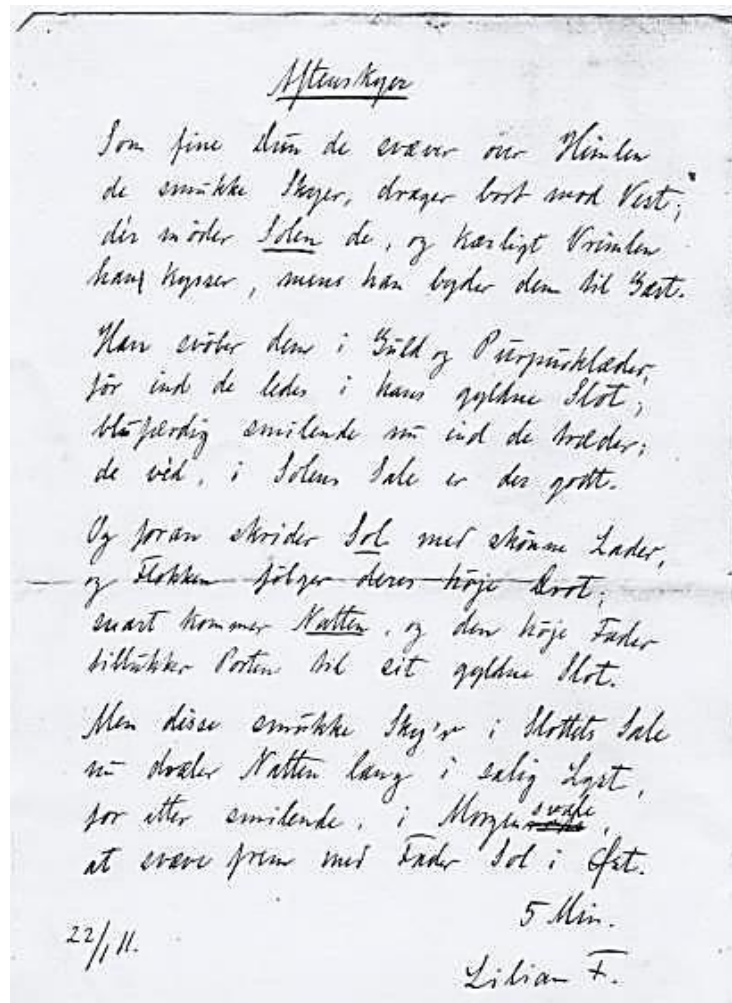 Aftenskyer
Som fine Dun de svæver over Himlen
de smukke Skyer, drager bort mod Vest;
dér möder Solen de, og kærligt Vrimlen
han kysser, mens han byder dem til Gæst.
Han svöber dem i Guld og Purpurklæder,
för ind de ledes i hans gyldne Slot;
blufærdig smilende nu ind de træder;
de véd, i Solens Sale er der godt.
Og foran skrider Sol med skönne Lader,
og Flokken fölger deres höje Drot;
snart kommer Natten, og den höje Fader
tillukker Porten til sit gyldne Slot.
Men disse smukke Sky'r i Slottets Sale
nu dvæler Natten lang i salig Lyst,
for atter smilende, i Morgen
at svæve frem med Fader Sol i Øst.
5 Min.
22/1 11.
Lilian F.